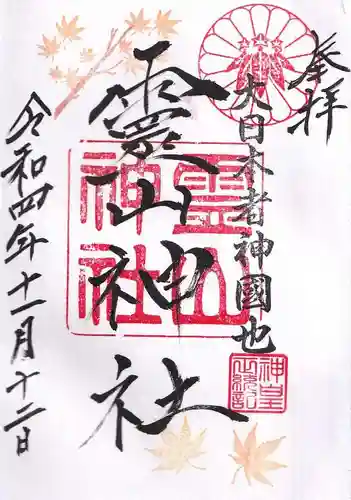 奉拝
大日本者神國也
靈山神社
令和四年十一月十二日
霊山
神社
神皇
正統記